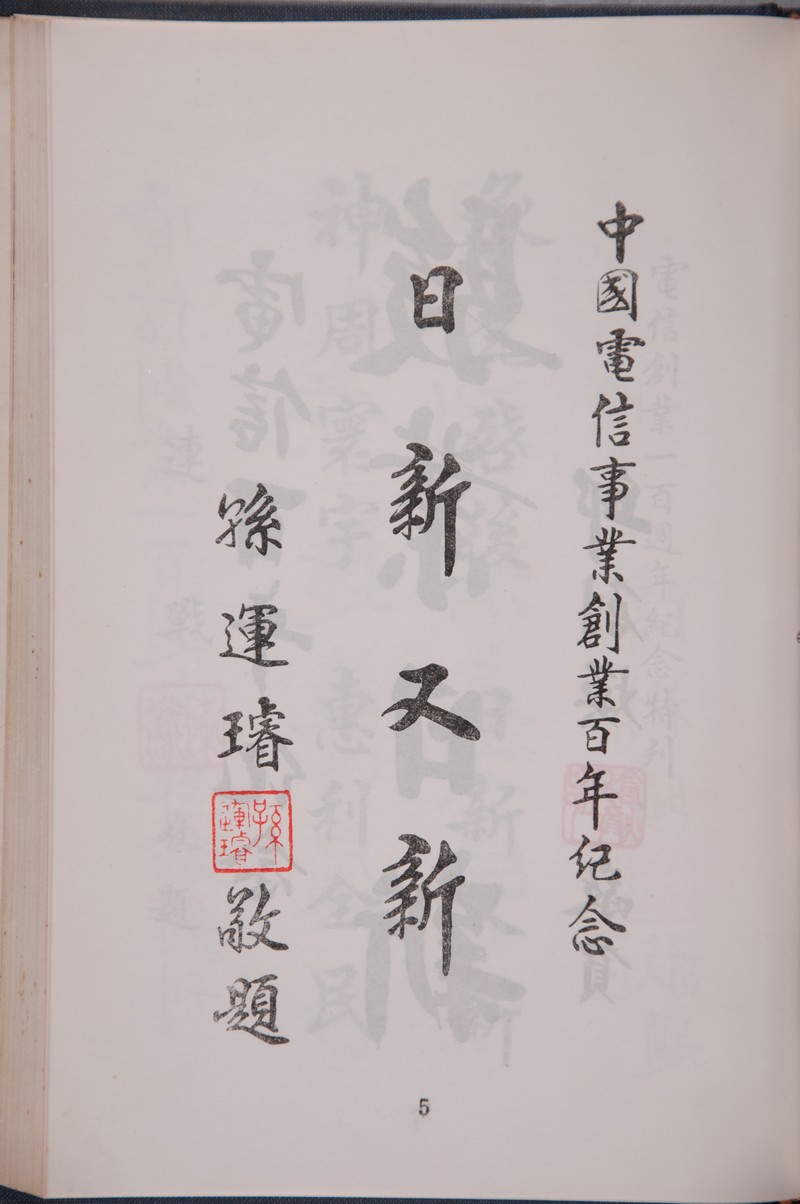 中國電信事業創業百年紀念
日新又新
孫運璿
孫運璿
敬題
5